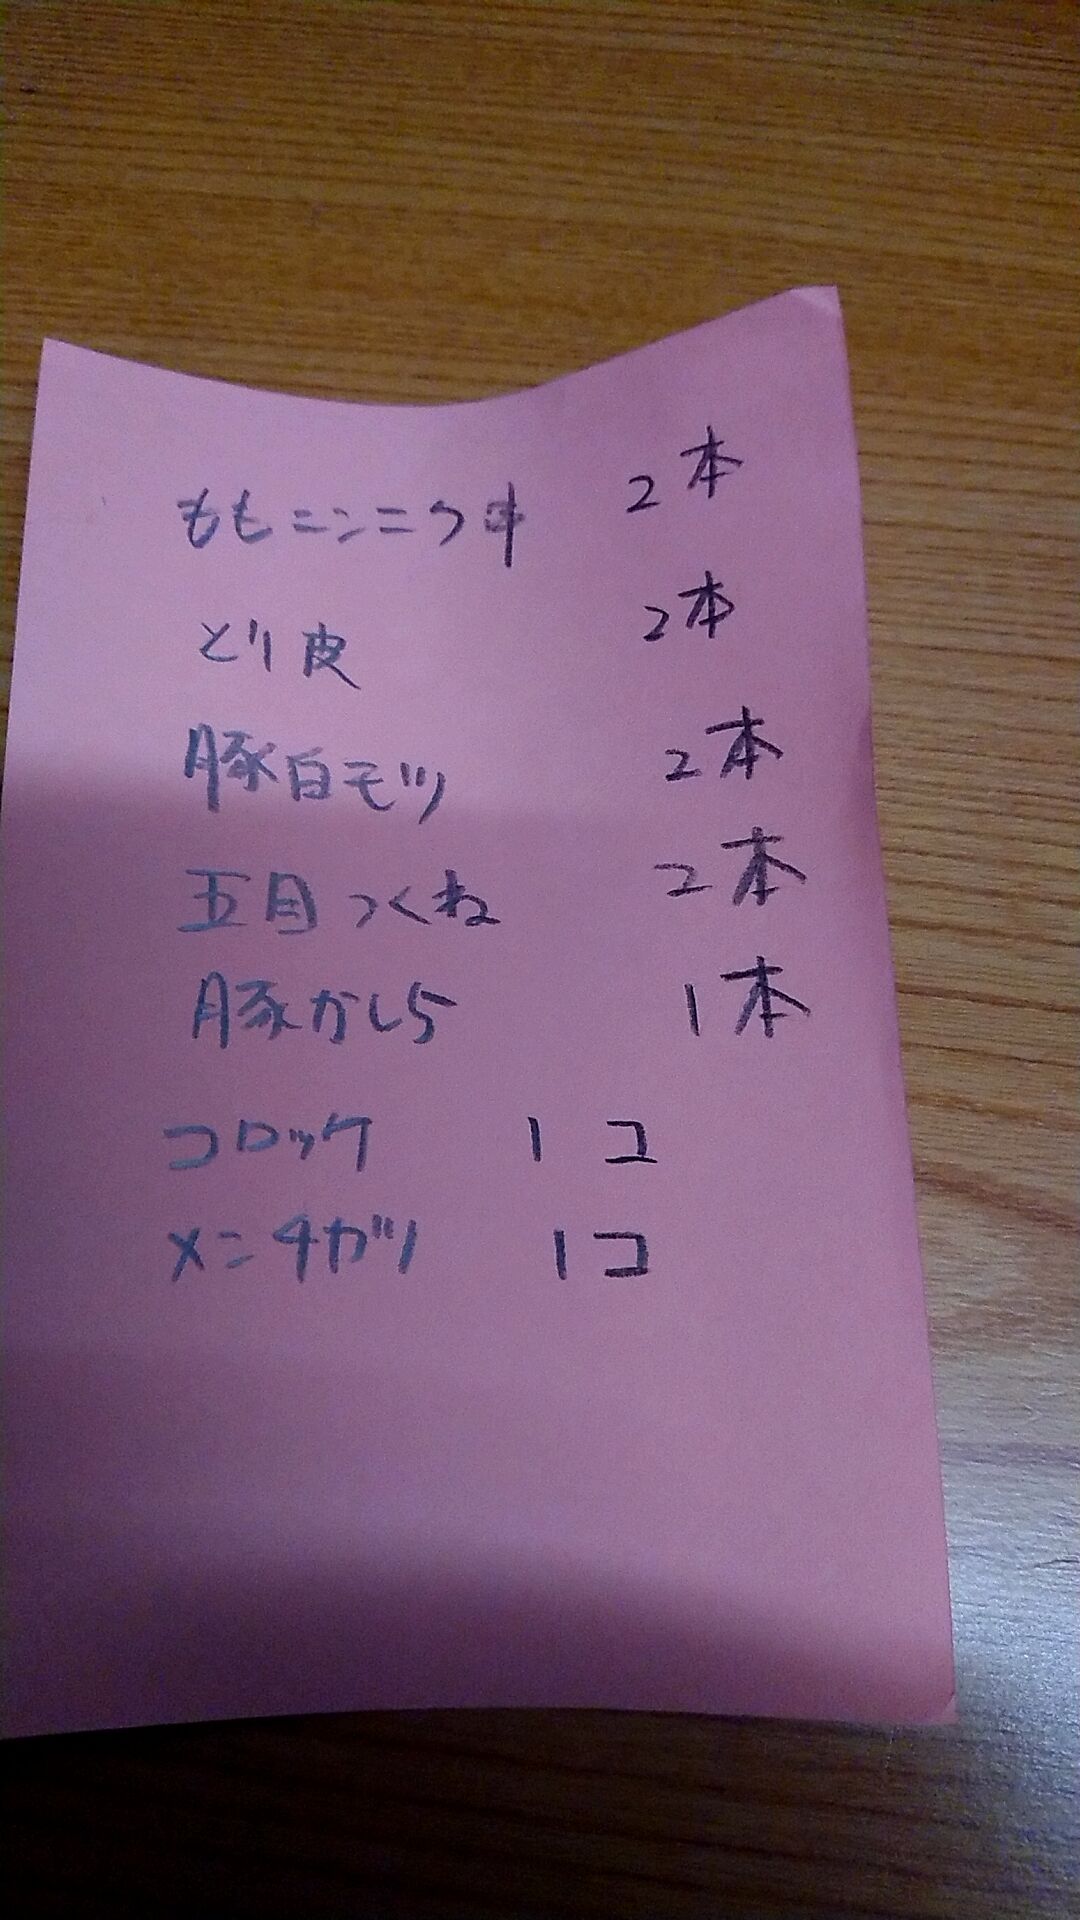 ももニンニク串 2本
とり皮 2本
豚白モツ 2本
五目つくね 2本
豚かしら 1本
コロッケ 1コ
メンチカツ 1コ